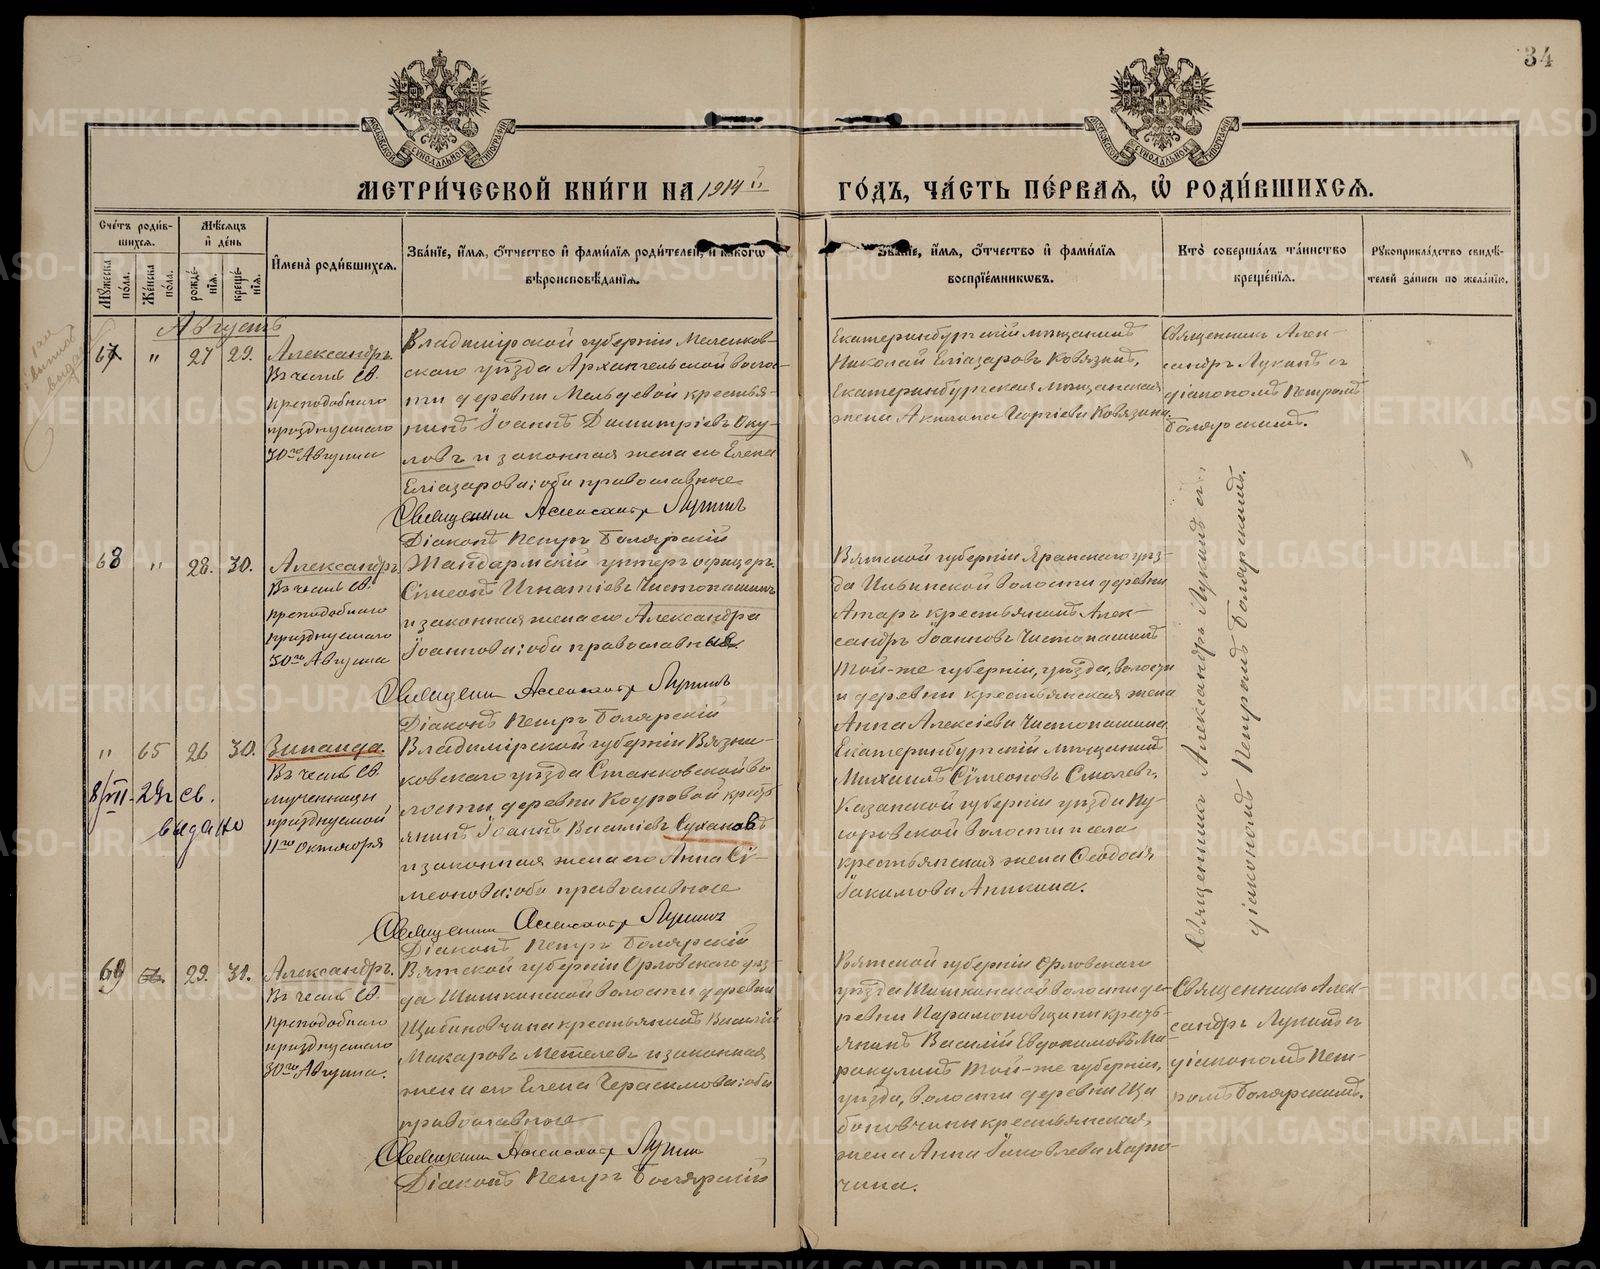 34
МЕТРИ́ЧЕСКОЙ КНИ́ГИ НА 1914 й
ГО́ДЪ, ЧА́СТЬ ПЕ́РВАЯ, Ѡ РОДИ́ВШИХСЯ.
Сче́тъ роди́вшихся.
Му́жеска по́ла.
Же́нска по́ла.
Мѣ́сяцъ и де́нь
рожде́нія.
креще́нія.
И҆мена̀ роди́вшихся.
Зва́нїе, и҆́мя, ѻ҆́тчество и҆ фами́лїя роди́телей, и҆ како́гѡ
вѣроисповѣ́данїя.
Зва́нїе, и҆́мя, ѻ҆́тчество и҆ фами́лїя
воспрїе́мникѡвъ.
Кто̀ соверша́лъ та́инство
креще́нїя.
Рꙋкоприкла́дство свидѣ́-
телей за́писи по жела́нїю.
Августъ
67 " 27 29.
Александръ
Въ честь Св.
преподобнаго
празднуемаго
30го Августа
Владимірской губерніи Меленков-
скаго уѣзда Архангельской волос-
ти деревни крестья-
нинъ Іоаннъ Димитріевъ Оку-
ловъ и законная жена его Елена
Еліазарова; оба православные
Священникъ Александръ Лукинъ
Діаконъ Петръ Боярскій
Екатеринбургскій мѣщанинъ
Николай Еліазаровъ Ковязинъ,
Екатеринбургская мѣщанская
жена Акилина Георгіева Ковязина.
Священникъ Алек-
сандръ Лукинъ съ
діакономъ Петромъ
Боярскимъ.
68 " 28. 30.
Александръ
Въ честь Св.
преподобнаго
празднуемаго
30го Августа
Жандармскій унтеръ офицеръ
Сѵмеонъ Игнатіевъ Чистопашинъ
и законная жена его Александра
Іоаннова; оба православные.
Священникъ Александръ Лукинъ
Діаконъ Петръ Боярскій
Вятской губерніи Яранскаго уѣз-
да Ильинской волости деревни
Атаръ крестьянинъ Алек-
сандръ Іоанновъ Чистопашинъ
той-же губерніи, уѣзда, волости
и деревни крестьянская жена
Анна Алексіева Чистопашина.
Священникъ Александръ Лукинъ съ
діакономъ Петромъ Боярскимъ.
" 65 26 30.
8/VII - 29г св.
выдано
Зинаида.
Въ честь Св.
мученницы
празднуемой
11го Октября
Владимірской губерніи Вязни-
ковскаго уѣзда Станковской во
лости деревни крестъ
янинъ Іоаннъ Василіевъ Сухановъ
и законная жена его Анна Сѵ-
меонова; оба православные
Священникъ Александръ Лукинъ
Діаконъ Петръ Боярскій
Екатеринбургскій мѣщанинъ
Михаилъ Сѵмеоновъ Смолевъ,
Казанской губерніи уѣзда
волости и села
крестьянская жена Ѳеодосія
Іакимова Аникина.
69 29. 31.
Александръ.
Въ честь Св.
преподобнаго
празднуемаго
30го Августа.
Вятской губерніи Орловскаго уѣз-
да волости деревни
крестьянинъ Василій
Макаровъ Метелевъ и законная
жена его Елена Герасимова; оба
православные
Священникъ Александръ Лукинъ
Діаконъ Петръ Боярскій
Вятской губерніи Орловскаго
уѣзда волости де-
ревни крестъ-
янинъ Василій Евдокимовъ Ма-
ракулинъ той-же губерніи,
уѣзда, волости деревни
крестьянская,
жена Анна Іаковлева
Священникъ Алек-
сандръ Лукинъ съ
діакономъ Пет-
ромъ Боярскимъ.
METRIKI.GASO-URAL.RU